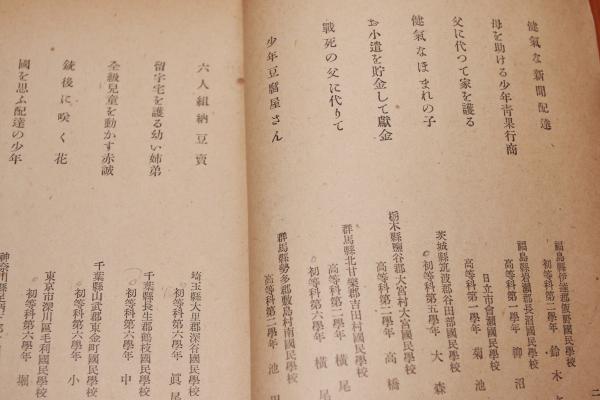 二
健氣な新聞配達
福島縣伊達郡飯野國民學校
初等科第二學年 鈴木
母を助ける少年靑果行商
福島縣岩瀨郡長沼國民學校
高等科第一學年 柳沼
父に代つて家を護る
日立市會瀨國民學校
高等科第二學年 菊池
健氣なほまれの子
茨城縣筑波郡谷田部國民學校
初等科第五學年 大森
お小遣を貯金して獻金
栃木縣鹽谷郡大宮村大宮國民學校
高等科第二學年 高橋
戰死の父に代りて
群馬縣北甘樂郡吉田村國民學校
高等科第二學年 橫尾
初等科第六學年 橫尾
少年豆腐屋さん
群馬縣勢多郡敷島村南國民學校
高等科第二學年 池田
六人組納豆賣
埼玉縣大里郡深谷國民學校
初等科第六學年 眞尾
留守宅を護る幼い姉弟
千葉縣長生郡鶴枝國民學校
初等科第六學年 中
全級兒童を動かす赤誠
千葉縣山武郡東金町國民學校
初等科第六學年 小
銃後に咲く花
東京市深川區毛利國民學校
初等科第六學年 堀
國を思ふ配達の少年
神奈川縣足柄